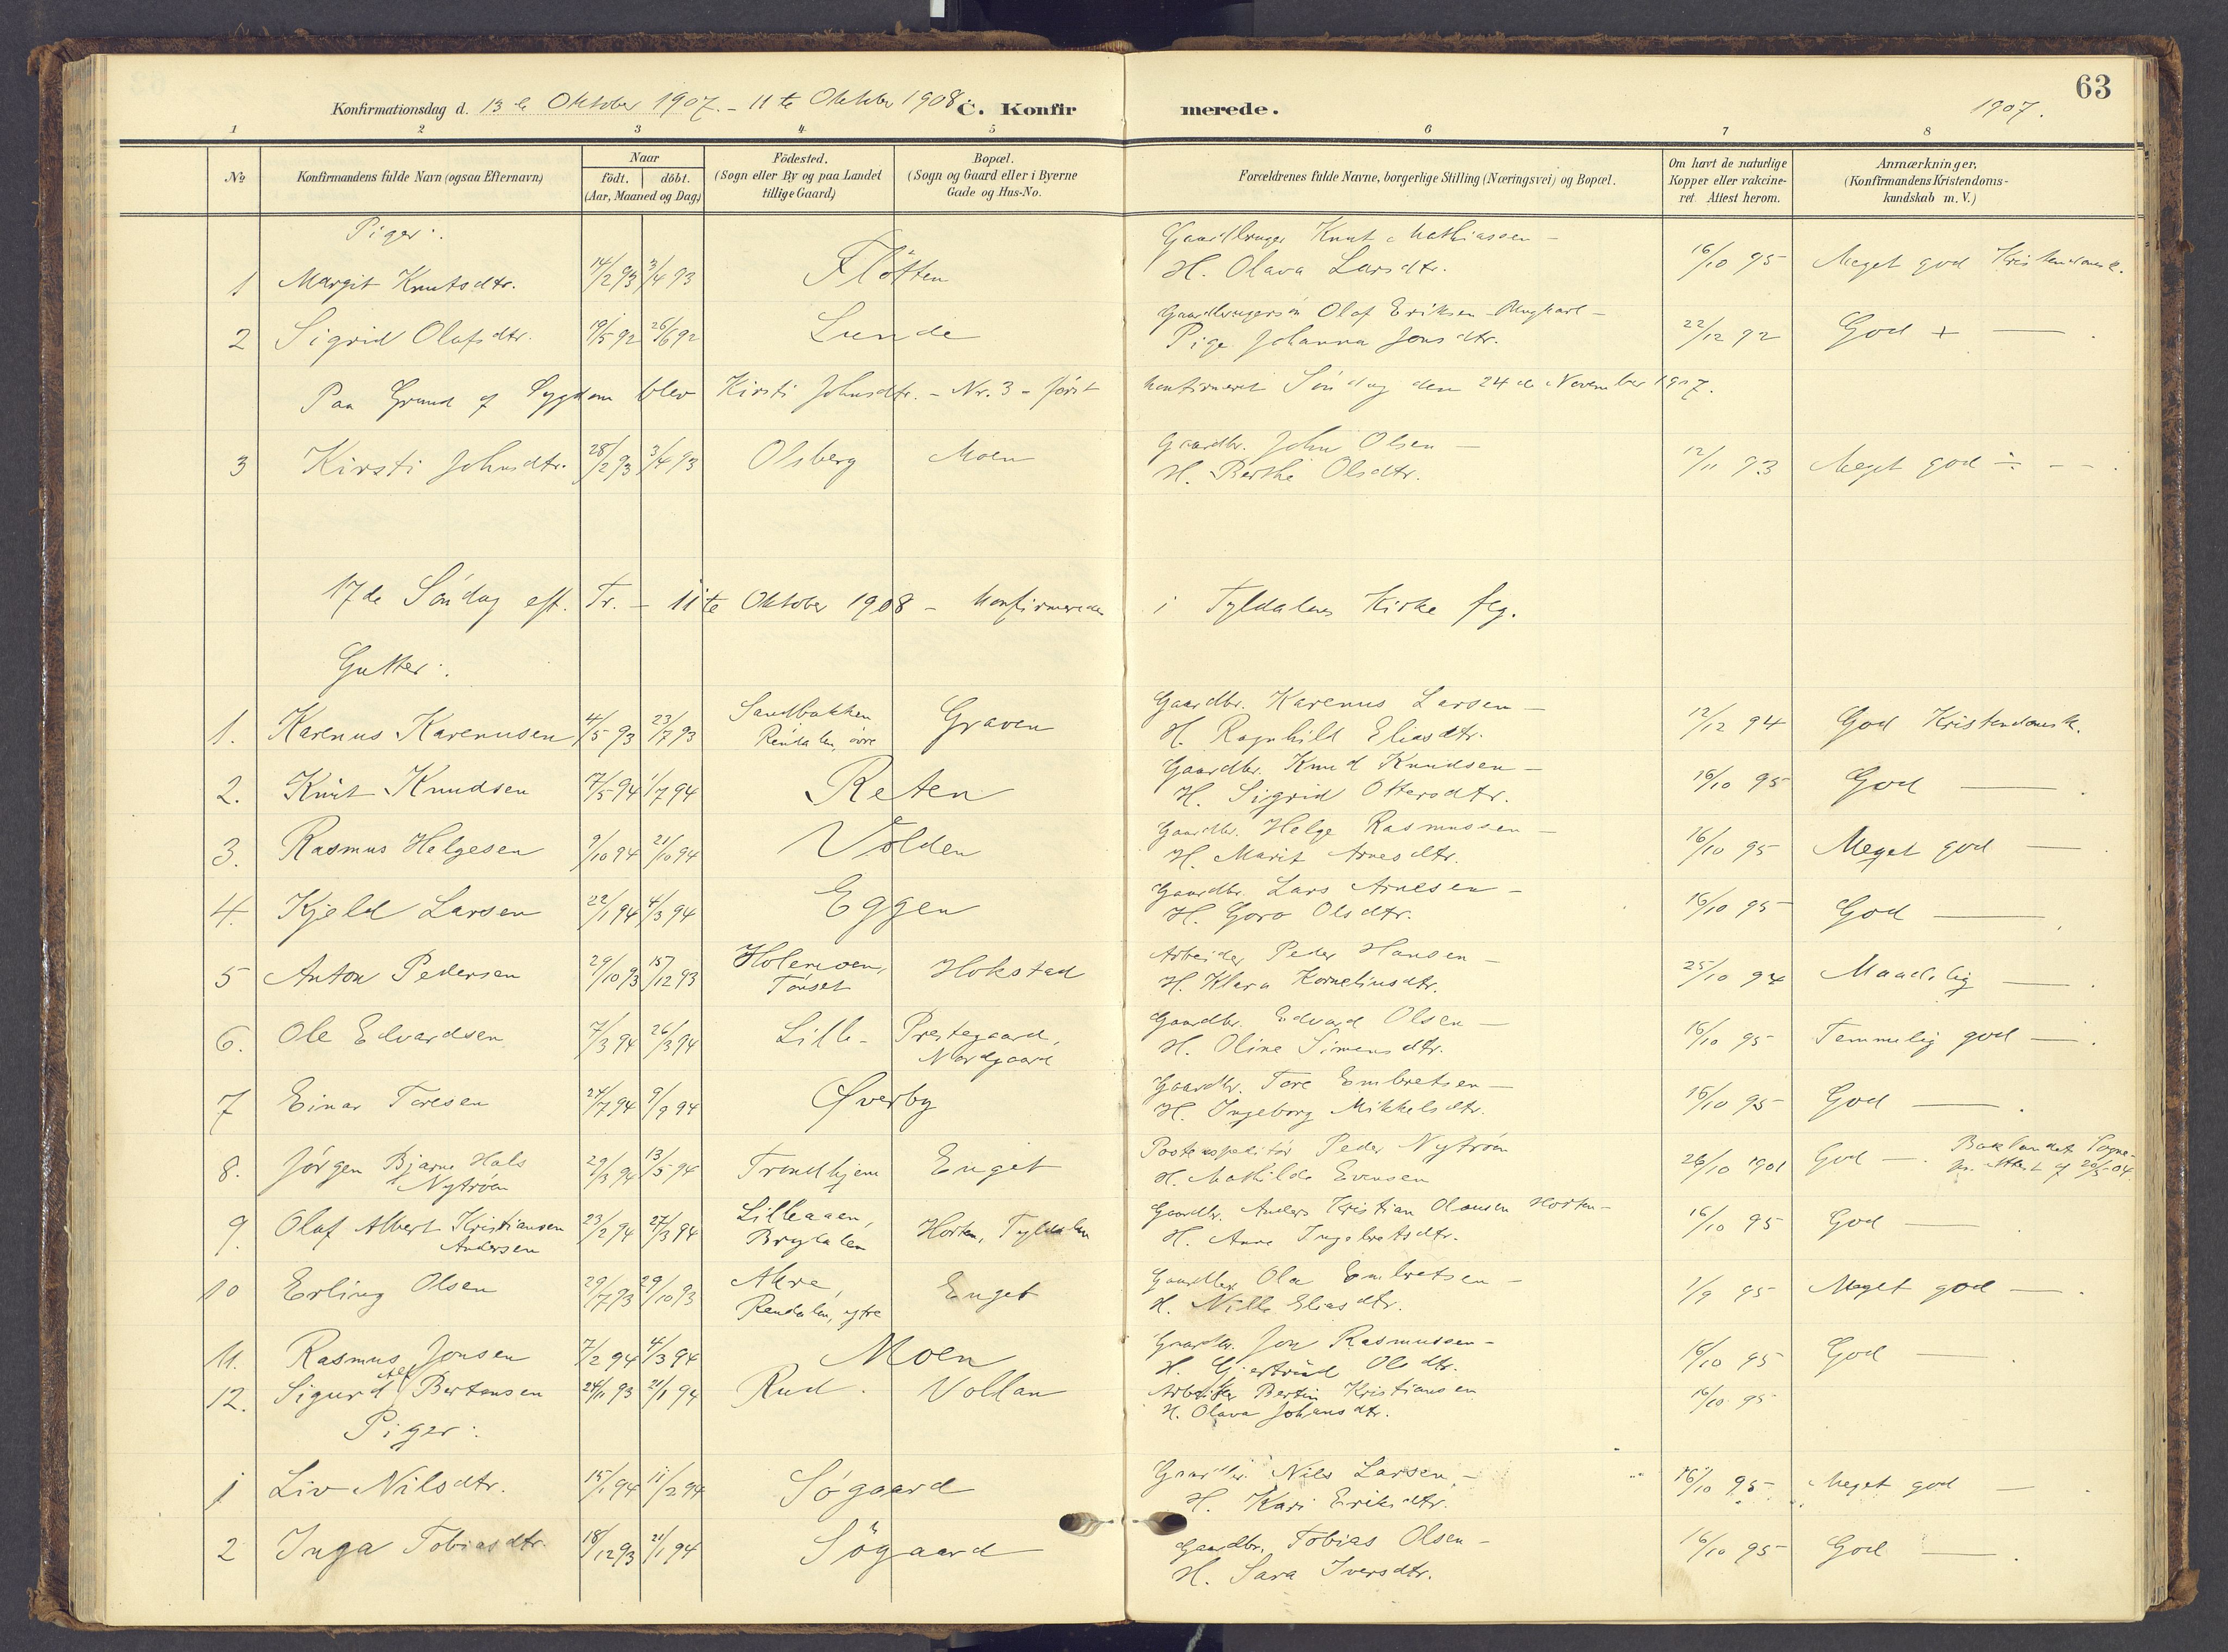 63
Konfirmationsdag d. 13de Oktober 1907. - 11te Oktober 1908. C. Konfirmerede. 1907.
1 2 3 4 5 6 7 8
No Konfirmandens fulde Navn (ogsaa Efternavn) Naar födt. döbt. (Aar, Maaned og Dag.) Födested. (Sogn eller By og paa Landet tillige Gaard.) Bopæl. (Sogn og Gaard eller i Byerne Gade og Hus-No. Forældrenes fulde Navne, borgerlige Stilling (Næringsvei) og Bopæl. Om havt de naturlige Kopper eller vakcineret. Attest herom. Anmærkninger. (Konfirmandens Kristendomskundskab m. V.)
Piger:
Gaardbruger Knut Mathiassen -
1 Margit Knutsdtr. 14/2 93 3/4 93 Fløtten H. Olava Larsdtr. 16/10 95 Meget god Kristendomsk.
Gaardbrugersøn Olaf Eriksen Ungkarl -
2 Sigrid Olafsdtr. 19/5 92 26/6 92 Lunde Pige Johanna Jonsdtr. 22/12 92 God + — .
Paa Grund af Sygdom blev Kirsti Johnsdtr. - Nr. 3 - først konfirmeret Søndag den 24de November 1907.
Gaardbr. John Olsen -
3 Kirsti Johnsdtr. 28/2 93 3/4 93 Olsberg Moen H. Berthe Olsdtr. 12/11 93 Meget god ÷ - - .
17de Søndag eft. Tr. - 11te Oktober 1908 - konfirmeredes i Tyldalens Kirke flg.
Gutter:
Gaardbr. Karenus Larsen -
1. Karenus Karenusen 4/5 93 23/7 93 Sandbakken Rendalen, øvre Graven H. Ragnhild Eliasdtr. 12/12 94 God Kristendomsk.
Gaardbr. Knud Knudsen -
2. Knut Knudsen 7/5 94 1/7 94 Reten H. Sigrid Ottersdtr. 16/10 95 God — .
Gaardbr. Helge Rasmussen -
3. Rasmus Helgesen 9/10 94 21/10 94 Volden H. Marit Arnesdtr. 16/10 95 Meget god — .
Gaardbr. Lars Arnesen -
4. Kjeld Larsen 22/1 94 4/3 94 Eggen H. Goro Olsdtr. 16/10 95 God — .
Arbeider Peder Hansen -
5 Anton Pedersen 29/10 93 15/12 93 Holemoen, Tønset Hokstad H. Klara Korneliusdtr. 25/10 94 Maadelig — .
Gaardbr. Edvard Olsen -
6. Ole Edvardsen 7/3 94 26/3 94 Lille- Prestegaard, Nordgaard H. Oline Simensdtr. 16/10 95 Temmelig god — .
Gaardbr. Tore Embretsen -
7 Einar Toresen 24/7 94 9/9 94 Øverby H. Ingeborg Mikkelsdtr. 16/10 95 God — .
Postexpeditør Peder Nytrøen
8. Jørgen Bjarne Hals Nytrøen 29/3 94 13/5 94 Trondhjem Enget H. Mathilde Evensen 26/10 1901 God — . Baklandets Sogne- pr. Attest af 20/5 04.
Gaardbr. Anders Kristian Olausen Horten -
9. Olaf Albert Kristiansen Andersen 23/2 94 27/3 94 Lilleaaen, Brydalen Horten, Tyldalen H. Anne Ingebretsdtr. 16/10 95 God — .
Gaardbr. Ole Embretsen -
10 Erling Olsen 29/7 93 29/10 93 Akre, Rendalen, ytre Enget H. Nille Eliasdtr. 1/9 95 Meget god — .
Gaardbr. Jon Rasmussen -
11. Rasmus Jonsen 7/2 94 4/3 94 Moen H. Gjertrud Olsdtr. 16/10 95 God — .
Arbeider Bertin Kristiansen
12. Sigurd Alf Bertensen 24/11 93 21/1 94 Rud. Vollan H. Olava Johansdtr. 16/10 95
Piger:
Gaardbr. Nils Larsen -
1 Liv Nilsdtr. 15/1 94 11/2 94 Søgaard H. Kari Eriksdtr. 16/10 95 Meget god — .
Gaardbr. Tobias Olsen -
2 Inga Tobiasdtr. 18/12 93 21/1 94 Søgaard H. Sara Iversdtr. 16/10 95 God — .